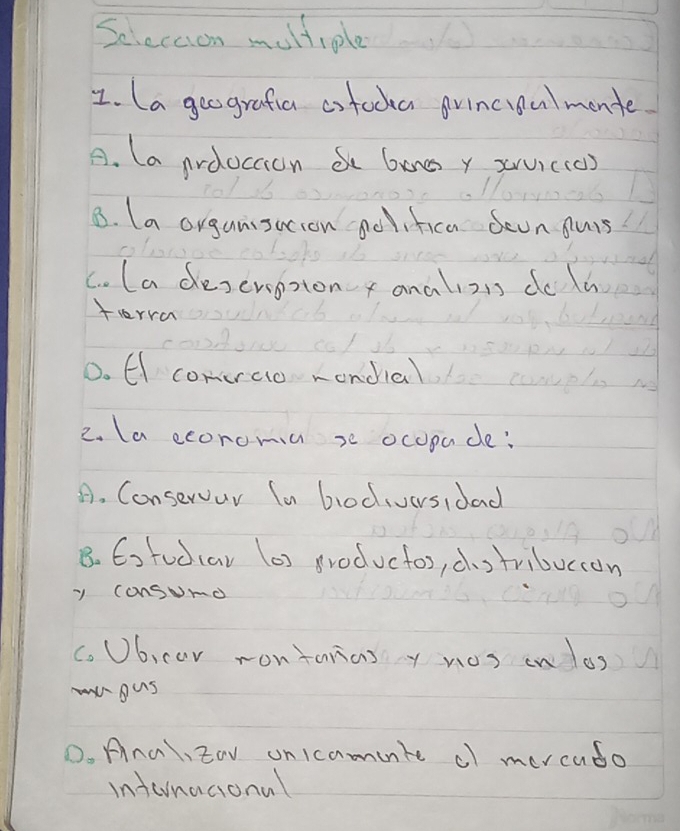 Seleccion multiple
1. La geografia estudia principalmente
A. La produccion de bienes y servicios
B. La organisacion politica de un pais
C. La descripsion y analisis de la
tierra
D. El comercio mondial
2. La economia se ocupa de:
A. Conservar la biodiversidad
B. Estudiar los productos, distribuccion
y consumo
C. Ubicar montañas y rios en los
mapas
D. Analizar unicamente el mercado
internacional